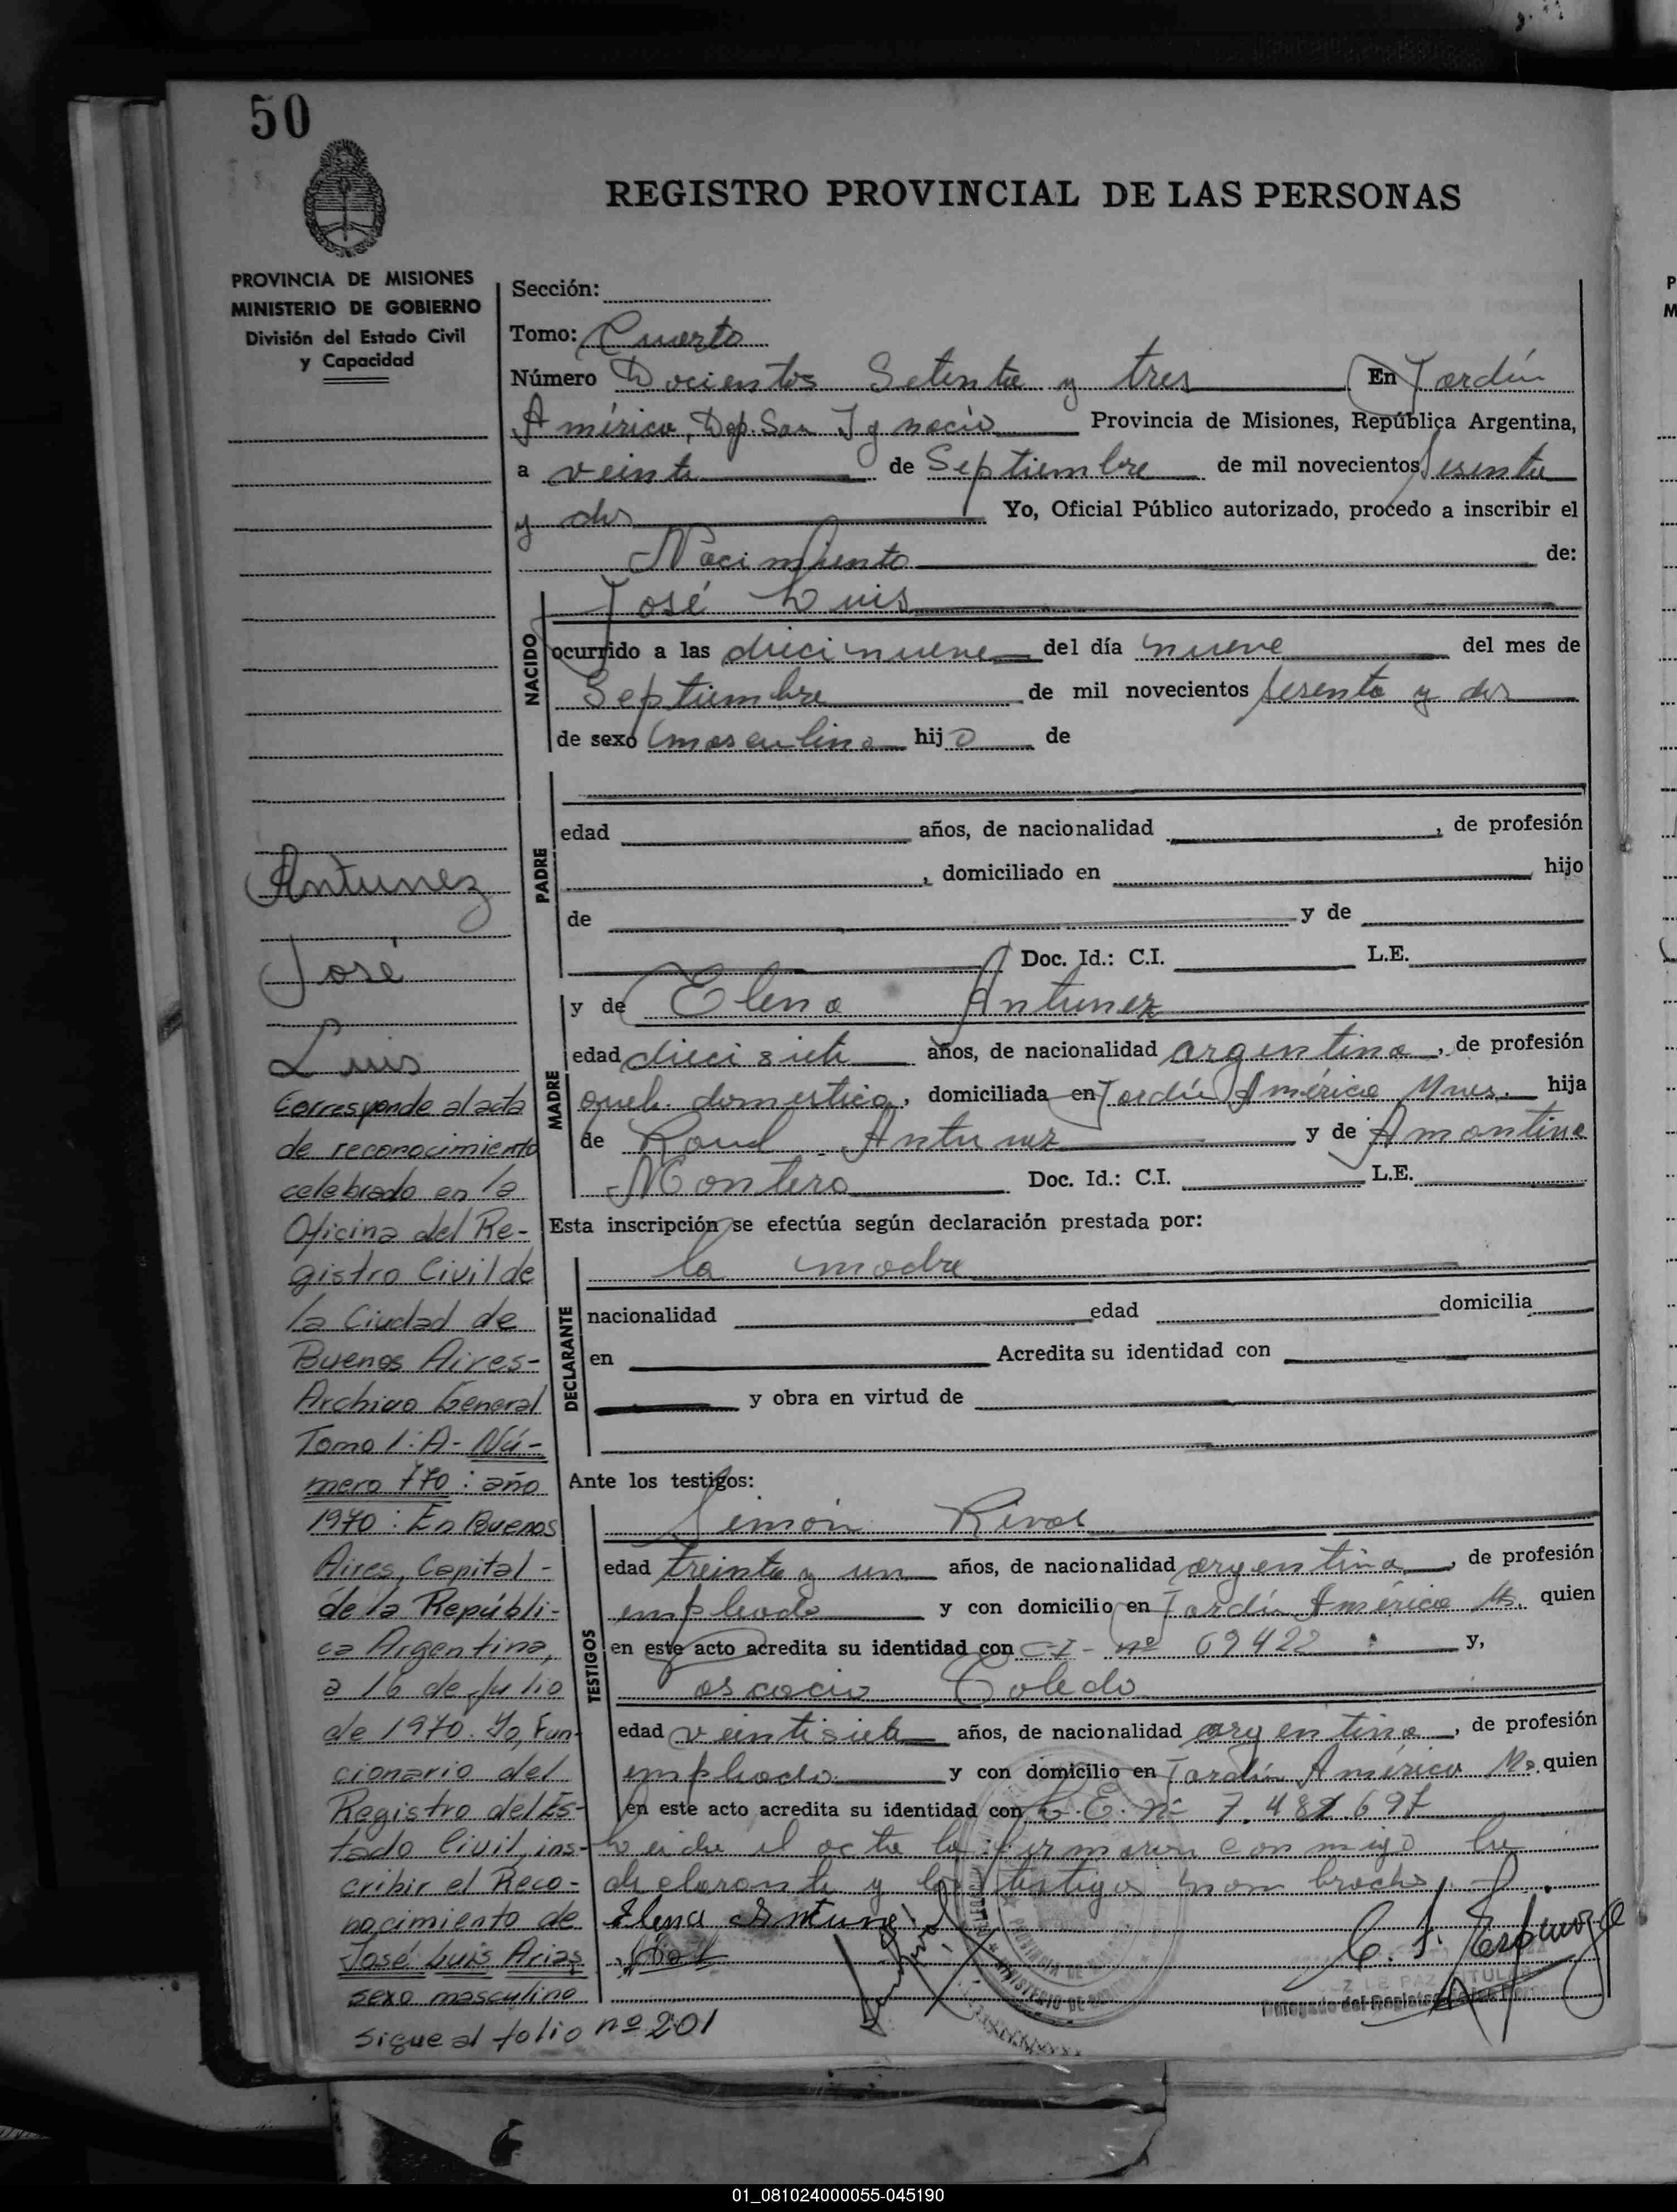 50
REGISTRO PROVINCIAL DE LAS PERSONAS
PROVINCIA DE MISIONES
MINISTERIO DE GOBIERNO
División del Estado Civil
y Capacidad
Sección:
Tomo: Cuarto
Número Docientos Setenta y tres En Jardín
América, Dep. San Ignacio Provincia de Misiones, República Argentina,
a veinte de Septiembre de mil novecientos sesenta
y dos Yo, Oficial Público autorizado, procedo a inscribir el
Nacimiento de:
NACIDO
José Luis
ocurrido a las diecinueve del día nueve del mes de
Septiembre de mil novecientos sesenta y dos
de sexo masculino hijo de
PADRE
edad años, de nacionalidad , de profesión
, domiciliado en hijo
de y de
Doc. Id.: C.I. L.E.
MADRE
y de Elena Antunez
edad diecisiete años, de nacionalidad argentina, de profesión
queh. domestica, domiciliada en Jardín América Mnes. hija
de Raul Antunez y de Amantina
Montero Doc. Id.: C.I. L.E.
Esta inscripción se efectúa según declaración prestada por:
DECLARANTE
la madre
nacionalidad edad domicilia
en Acredita su identidad con
y obra en virtud de
Ante los testigos:
TESTIGOS
Simón Rivas
edad treinta y un años, de nacionalidad argentina, de profesión
empleado y con domicilio en Jardín América Ms. quien
en este acto acredita su identidad con C-I- nº 69422 y,
Toledo
edad veintisiete años, de nacionalidad argentina, de profesión
empleado y con domicilio en Jardín América Ms. quien
en este acto acredita su identidad con L.E. nº
Leida el acta la firmaron conmigo la
declarante y los testigos nombrados
Elena Antunez
Antunez
José
Luis
Corresponde al acta
de reconocimiento
celebrado en la
Oficina del Re-
gistro Civil de
la Ciudad de
Buenos Aires-
Archivo General
Tomo 1: A- Nú-
mero 770: año
1970: En Buenos
Aires, Capital-
de la Repúbli-
ca Argentina,
a 16 de Julio
de 1970. Yo, Fun-
cionario del
Registro del Es-
tado Civil, ins-
cribir el Reco-
nocimiento de
José Luis Arias
sexo masculino
sigue al folio nº 201
01_081024000055-045190